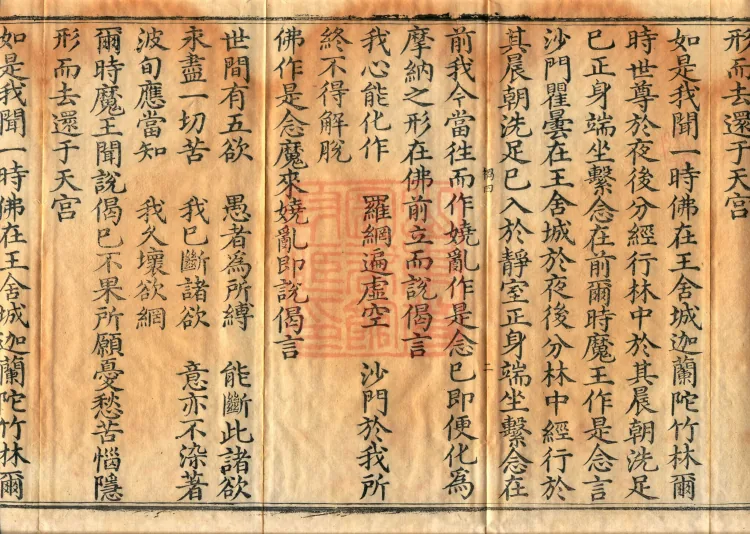 形而去還于天宮
如是我聞一時佛在王舍城迦蘭陀竹林爾
時世尊於夜後分經行林中於其晨朝洗足
已正身端坐繫念在前爾時魔王作是念言
沙門瞿曇在王舍城於夜後分林中經行於
其晨朝洗足已入於靜室正身端坐繫念在
前我今當往而作嬈亂作是念已即便化為
摩納之形在佛前立而說偈言
我心能化作 羅網遍虛空 沙門於我所
終不得解脫
佛作是念魔來嬈亂即說偈言
世間有五欲 愚者為所縛 能斷此諸欲
永盡一切苦 我已斷諸欲 意亦不染著
波旬應當知 我久壞欲網
爾時魔王聞說偈已不果所願憂愁苦惱隱
形而去還于天宮
如是我聞一時佛在王舍城迦蘭陀竹林爾